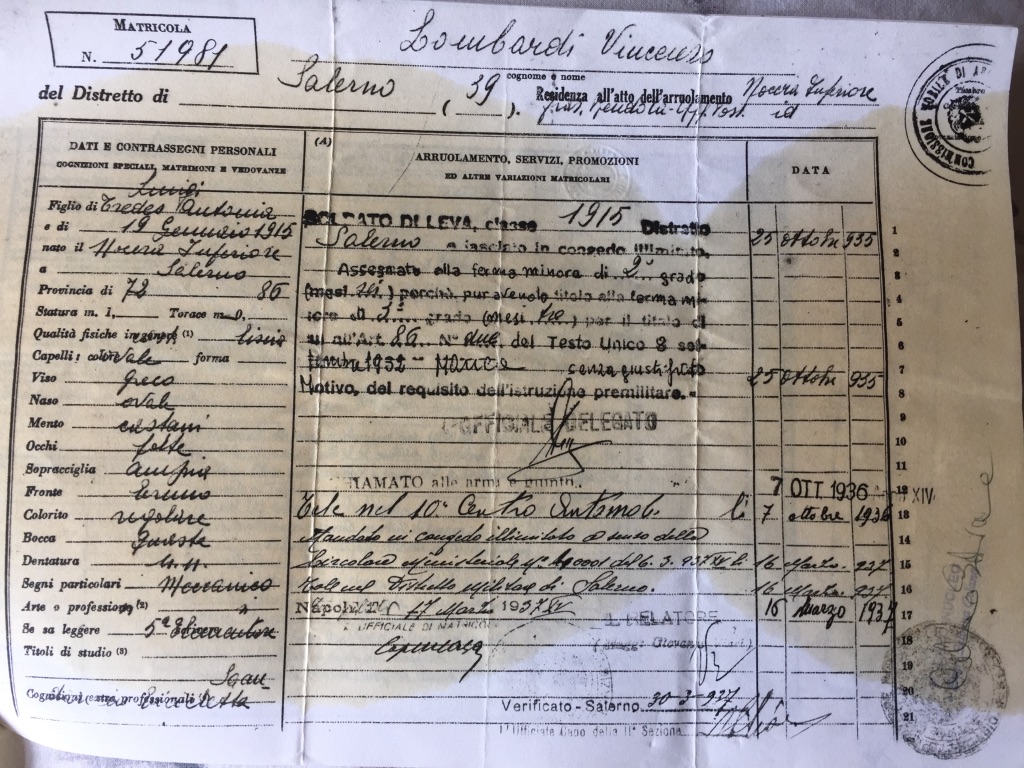 MATRICOLA
N. 51981
Lombardi Vincenzo
cognome e nome
del Distretto di Salerno ( 39 ). Residenza all'atto dell'arruolamento Nocera Inferiore
id
DATI E CONTRASSEGNI PERSONALI
COGNIZIONI SPECIALI, MATRIMONI E VEDOVANZE
(A)
ARRUOLAMENTO, SERVIZI, PROMOZIONI
ED ALTRE VARIAZIONI MATRICOLARI
DATA
Luigi
Figlio di Tredes Antonia
e di 19 Gennaio 1915
nato il Nocera Inferiore
a Salerno
Provincia di 72 86
Statura m. 1, Torace m. 0,
Qualità fisiche (1) liscio
Capelli: colore ovale forma
Viso Greco
Naso ovale
Mento castani
Occhi folte
Sopracciglia ampia
Fronte bruno
Colorito regolare
Bocca guasta
Dentatura n.n.
Segni particolari Meccanico
Arte o professione (2)
Se sa leggere 5ª Elementare
Titoli di studio (3)
Cognizioni extra professionali
SOLDATO DI LEVA, classe 1915 Distretto
Salerno e lasciato in congedo illimitato. 25 ottobre 935
Assegnato alla ferma minore di 2° grado
(mesi sei) perchè, pur avendo titolo alla ferma mi-
nore di grado (mesi tre) per il titolo di
cui all'Art. 86 N° due, del Testo Unico 8 set-
tembre 1932 - Manca senza giustificato
Motivo, del requisito dell'istruzione premilitare. - 25 ottobre 935
L'UFFICIALE DELEGATO
CHIAMATO alle armi e giunto. 7 OTT 1936 XIV
Tale nel 10° Centro Automob. li 7 ottobre 1936
Mandato in congedo illimitato a senso della
Circolare ministeriale n° del 6.3.937 XV li 16 Marzo 937
Tale nel Distretto militare di Salerno. 16 Marzo 937
Napoli, li 17 Marzo 1937 XV 16 Marzo 1937
UFFICIALE DI MATRICOLA
IL RELATORE
Verificato - Salerno 30-3-937
l'Ufficiale Capo della IIª Sezione
1
2
3
4
5
6
7
8
9
10
11
12
13
14
15
16
17
18
19
20
21